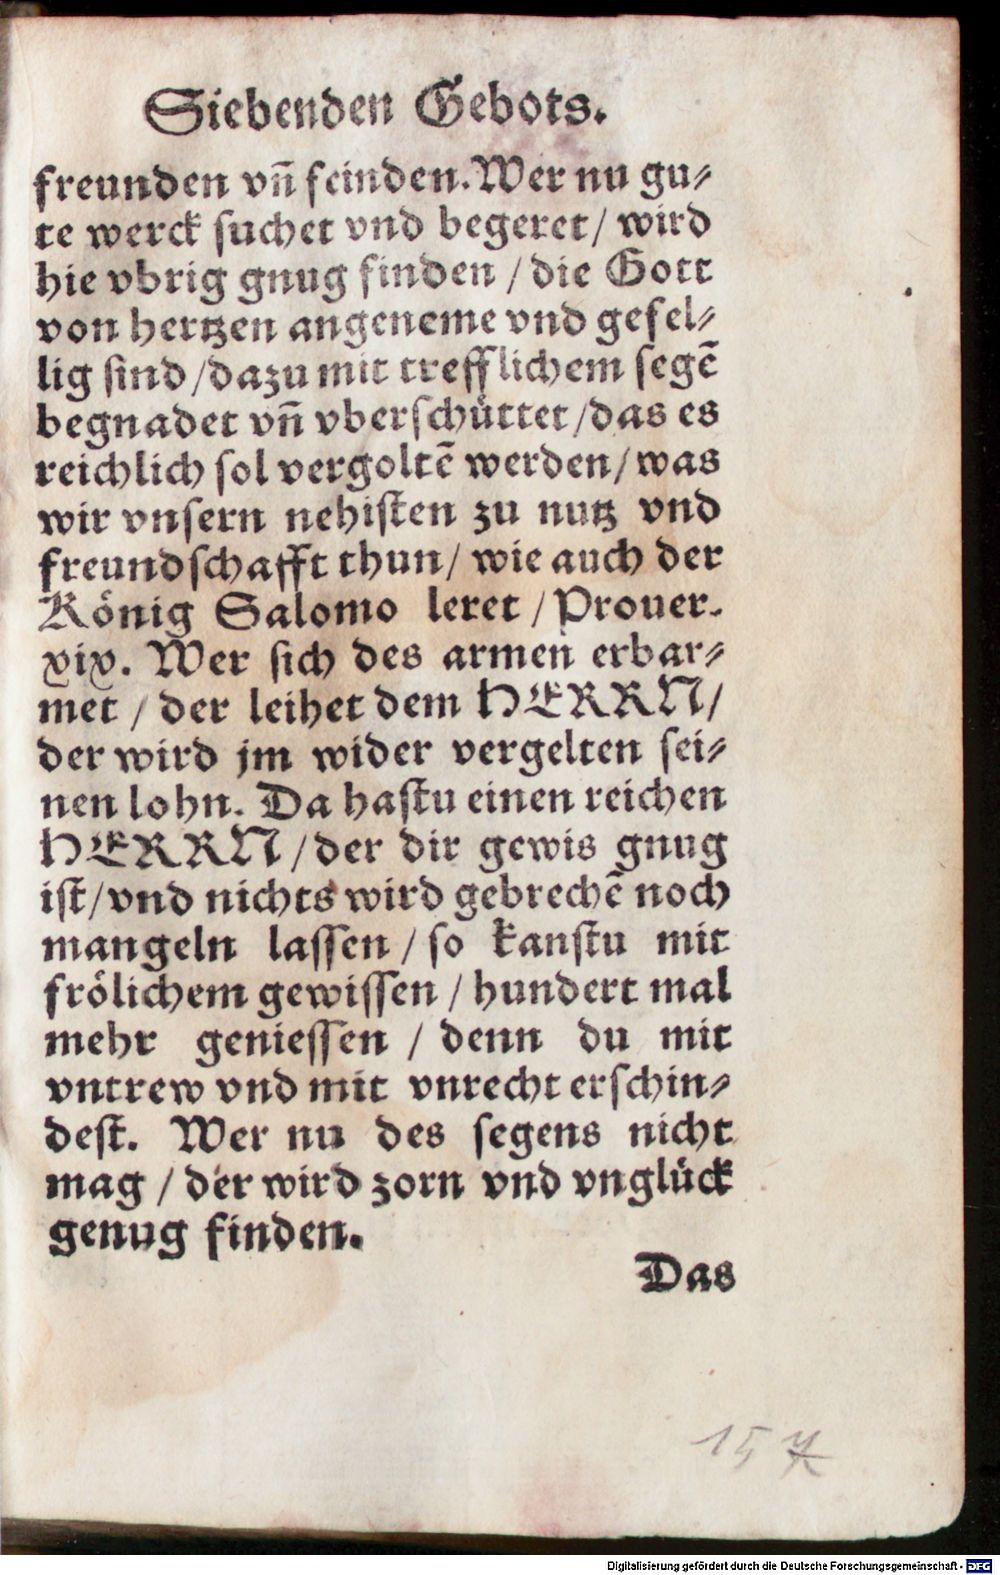 Siebenden Gebots.
freunden vn̄ feinden. Wer nu gu⸗
te werck suchet vnd begeret / wird
hie vbrig gnug finden / die Gott
von hertzen angeneme vnd gefel⸗
lig sind / dazu mit trefflichem segē
begnadet vn̄ vberschüttet / das es
reichlich sol vergoltē werden / was
wir vnsern nehisten zu nutz vnd
freundschafft thun / wie auch der
König Salomo leret / Prouer.
xix. Wer sich des armen erbar⸗
met / der leihet dem HERRN /
der wird jm wider vergelten sei⸗
nen lohn. Da hastu einen reichen
HERRN / der dir gewis gnug
ist / vnd nichts wird gebrechē noch
mangeln lassen / so kanstu mit
frölichem gewissen / hundert mal
mehr geniessen / denn du mit
vntrew vnd mit vnrecht erschin⸗
dest. Wer nu des segens nicht
mag / der wird zorn vnd vnglück
genug finden.
Das
157
Digitalisierung gefördert durch die Deutsche Forschungsgemeinschaft - DFG